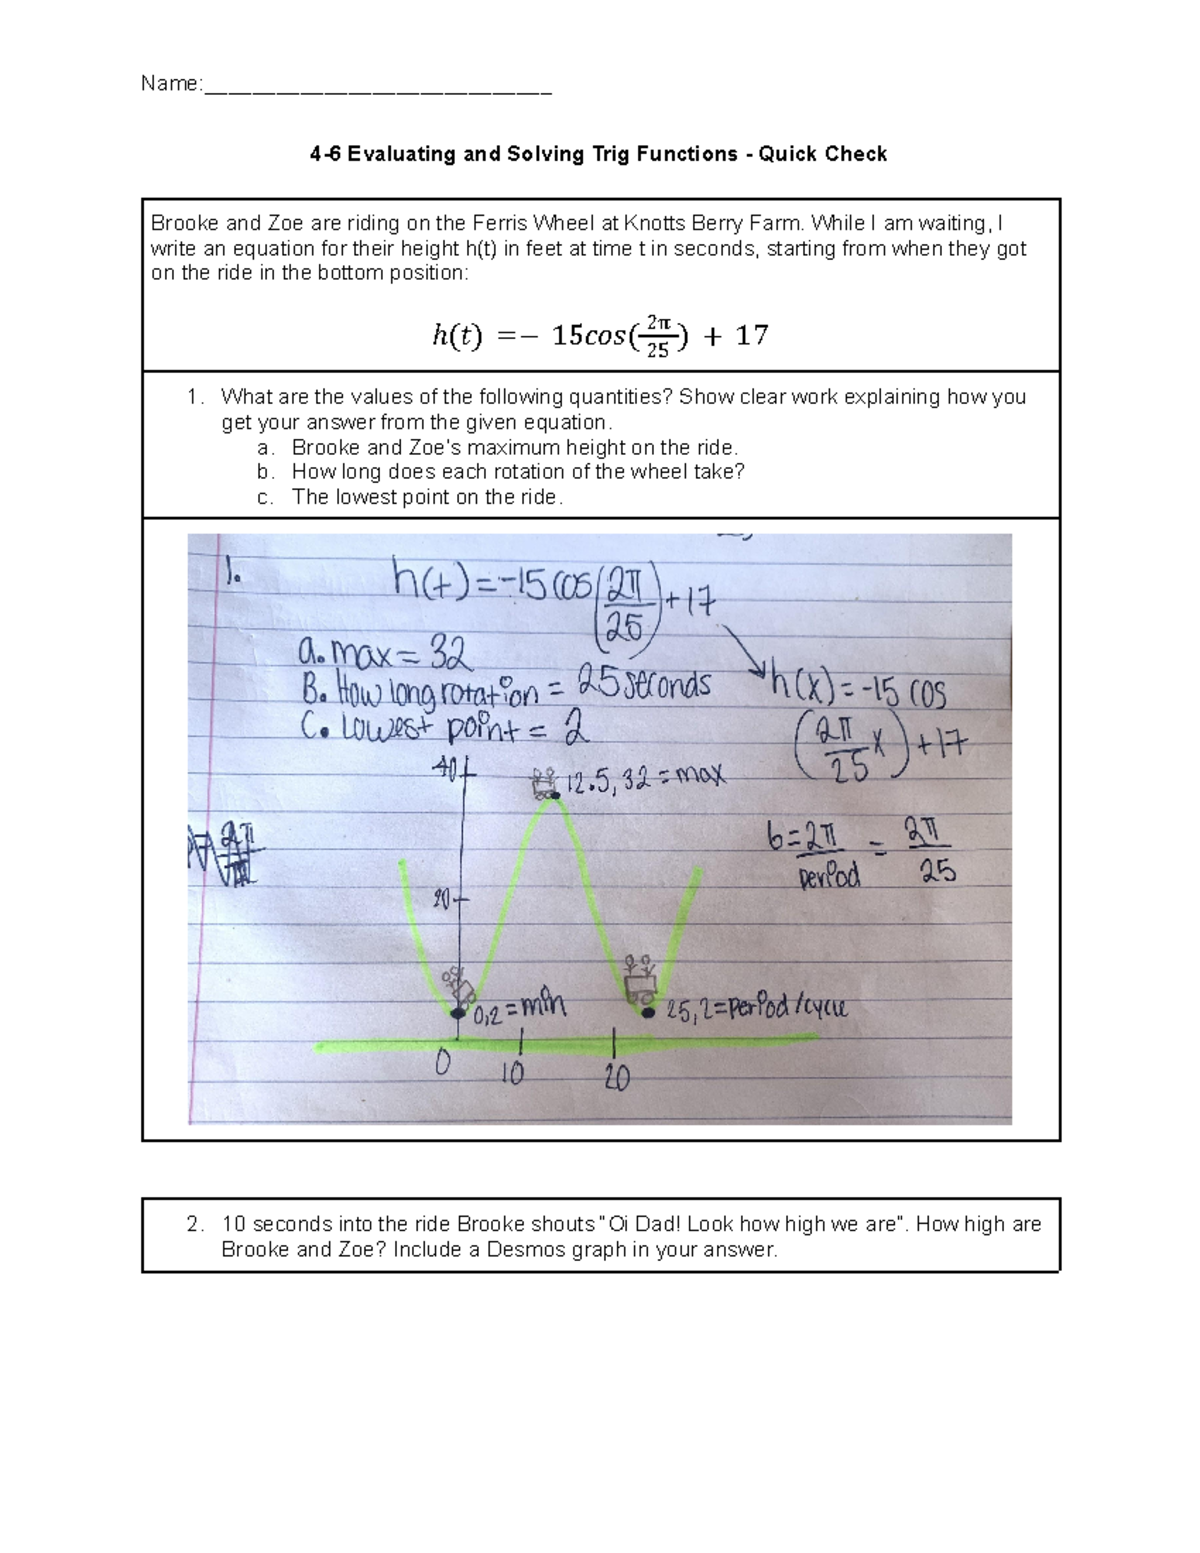 Name:_____________________________
4-6 Evaluating and Solving Trig Functions - Quick Check
Brooke and Zoe are riding on the Ferris Wheel at Knotts Berry Farm. While I am waiting, I
write an equation for their height h(t) in feet at time t in seconds, starting from when they got
on the ride in the bottom position:
h(t) =− 15cos(2π/25) + 17
1. What are the values of the following quantities? Show clear work explaining how you
get your answer from the given equation.
a. Brooke and Zoe's maximum height on the ride.
b. How long does each rotation of the wheel take?
c. The lowest point on the ride.
1. h(t)=-15 cos(2π/25)+17
a. max = 32
B. How long rotation = 25 seconds
C. Lowest point = 2
h(x) = -15 cos
(2π/25 x)+17
40
12.5, 32 = max
b=2π/period = 2π/25
20
0,2 = min
25,2=period/cycle
0 10 20
2. 10 seconds into the ride Brooke shouts "Oi Dad! Look how high we are". How high are
Brooke and Zoe? Include a Desmos graph in your answer.